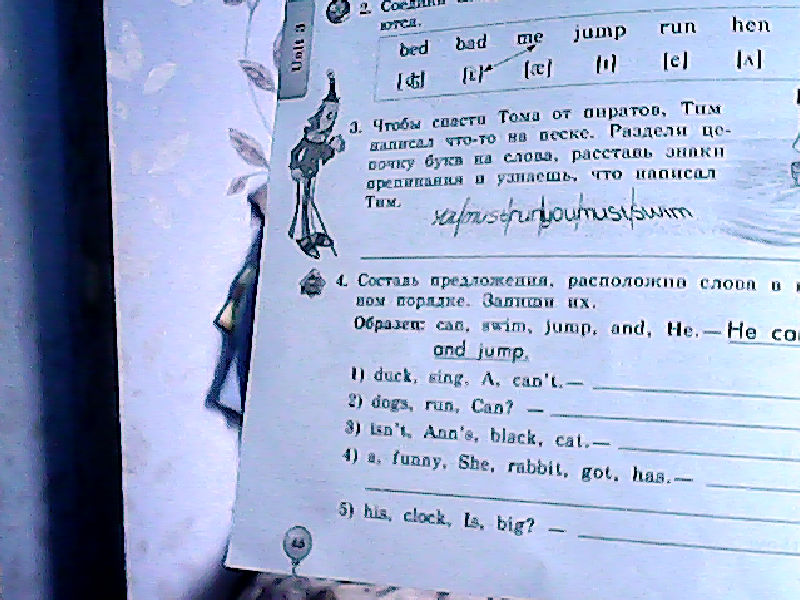 Unit 3
2. Соедини
ются.
bed bad me jump run hen
[ɪ] [æ] [e] [ʌ]
3. Чтобы спасти Тома от пиратов, Тим
написал что-то на песке. Раздели це-
почку букв на слова, расставь знаки
препинания и узнаешь, что написал
Тим.
you/must/swim
4. Составь предложения, расположив слова в
ном порядке. Запиши их.
Образец: can, swim, jump, and, He. — He
and jump.
1) duck, sing, A, can't. —
2) dogs, run, Can? —
3) isn't, Ann's, black, cat. —
4) a, funny, She, rabbit, got, has. —
5) his, clock, Is, big? —